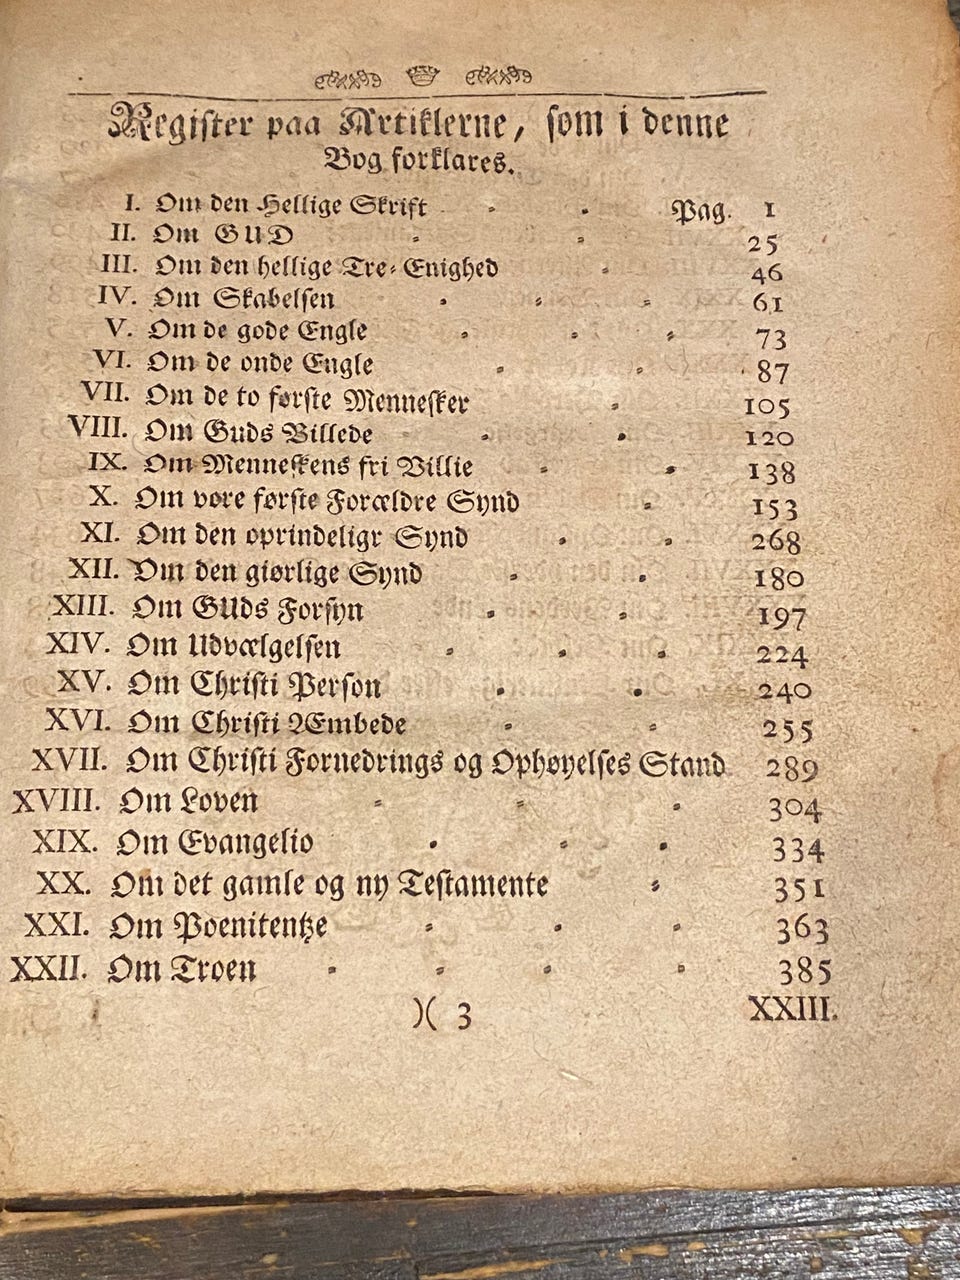 Register paa Artiklerne, som i denne
Bog forklares.
I. Om den Hellige Skrift Pag. 1
II. Om GUD 25
III. Om den hellige Tre-Enighed 46
IV. Om Skabelsen 61
V. Om de gode Engle 73
VI. Om de onde Engle 87
VII. Om de to første Mennesker 105
VIII. Om Guds Billede 120
IX. Om Menneskens fri Villie 138
X. Om vore første Forældre Synd 153
XI. Om den oprindeligr Synd 268
XII. Om den giørlige Synd 180
XIII. Om GUds Forsyn 197
XIV. Om Udvælgelsen 224
XV. Om Christi Person 240
XVI. Om Christi Æmbede 255
XVII. Om Christi Fornedrings og Ophøyelses Stand 289
XVIII. Om Loven 304
XIX. Om Evangelio 334
XX. Om det gamle og ny Testamente 351
XXI. Om Poenitentze 363
XXII. Om Troen 385
)( 3 XXIII.